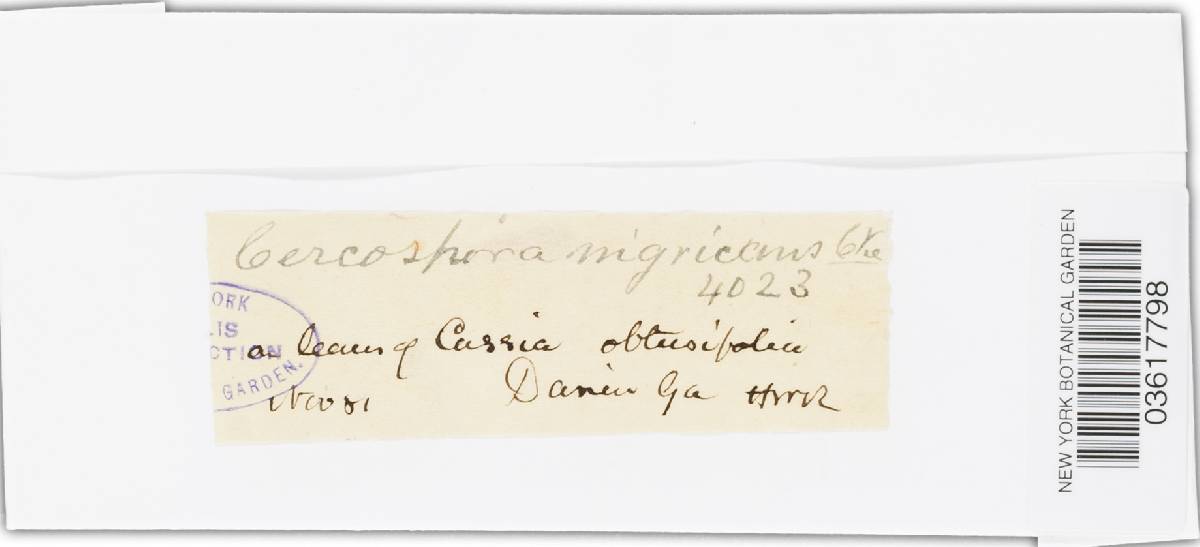 Cercospora nigricans Cke
4023
on leaves of Cassia obtusifolia
Nov 81 Darien Ga HWR
ORK
LIS
CTION
GARDEN.
NEW YORK BOTANICAL GARDEN
03617798